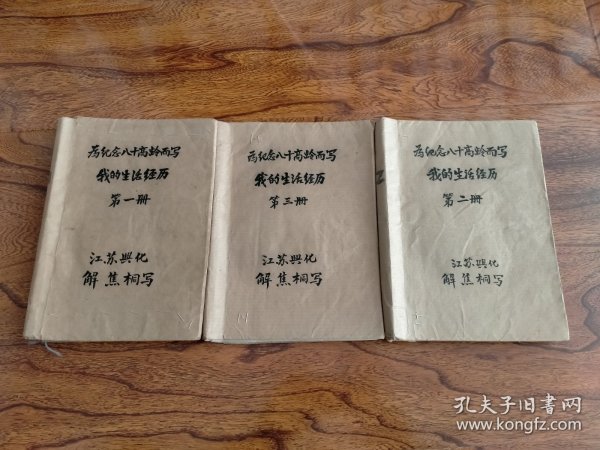 为纪念八十高龄而写
我的生活经历
第一册
江苏興化
解焦桐写
为纪念八十高龄而写
我的生活经历
第三册
江苏興化
解焦桐写
为纪念八十高龄而写
我的生活经历
第二册
江苏興化
解焦桐写
孔夫子旧书网
www.kongfz.com